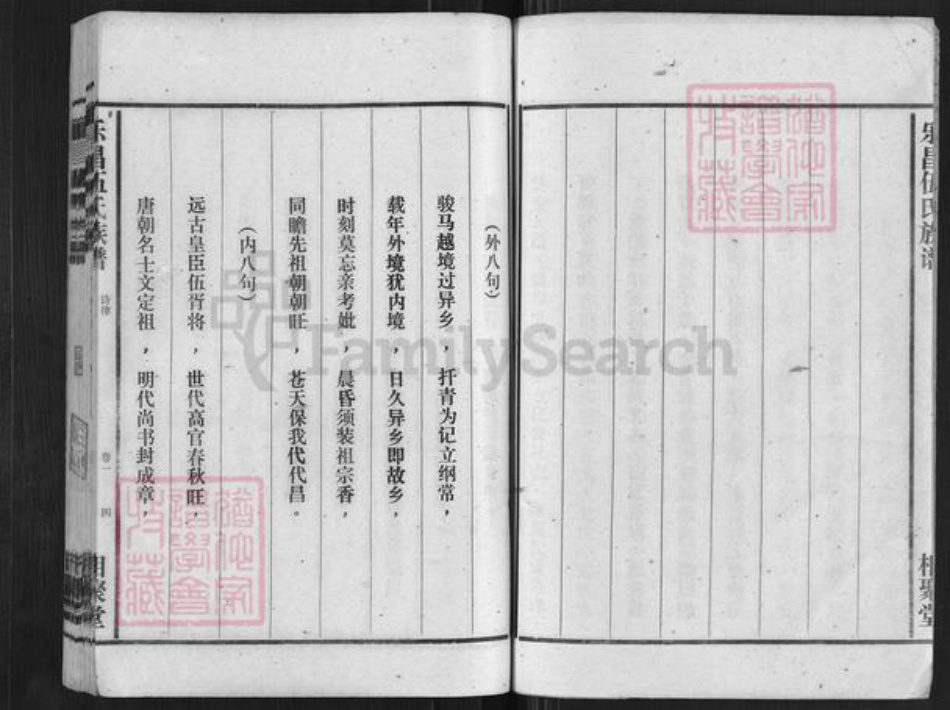 乐昌伍氏族谱
相聚堂
(外八句)
骏马越境过异乡，扦青为记立纲常，
载年外境犹内境，日久异乡即故乡，
时刻莫忘亲考妣，晨昏须装祖宗香，
同瞻先祖朝朝旺，苍天保我代代昌。
(内八句)
远古皇臣伍胥将，世代高官春秋旺，
唐朝名士文定祖，明代尚书封成章，
乐昌伍氏族谱
诗律
卷一
四
相聚堂
FamilySearch